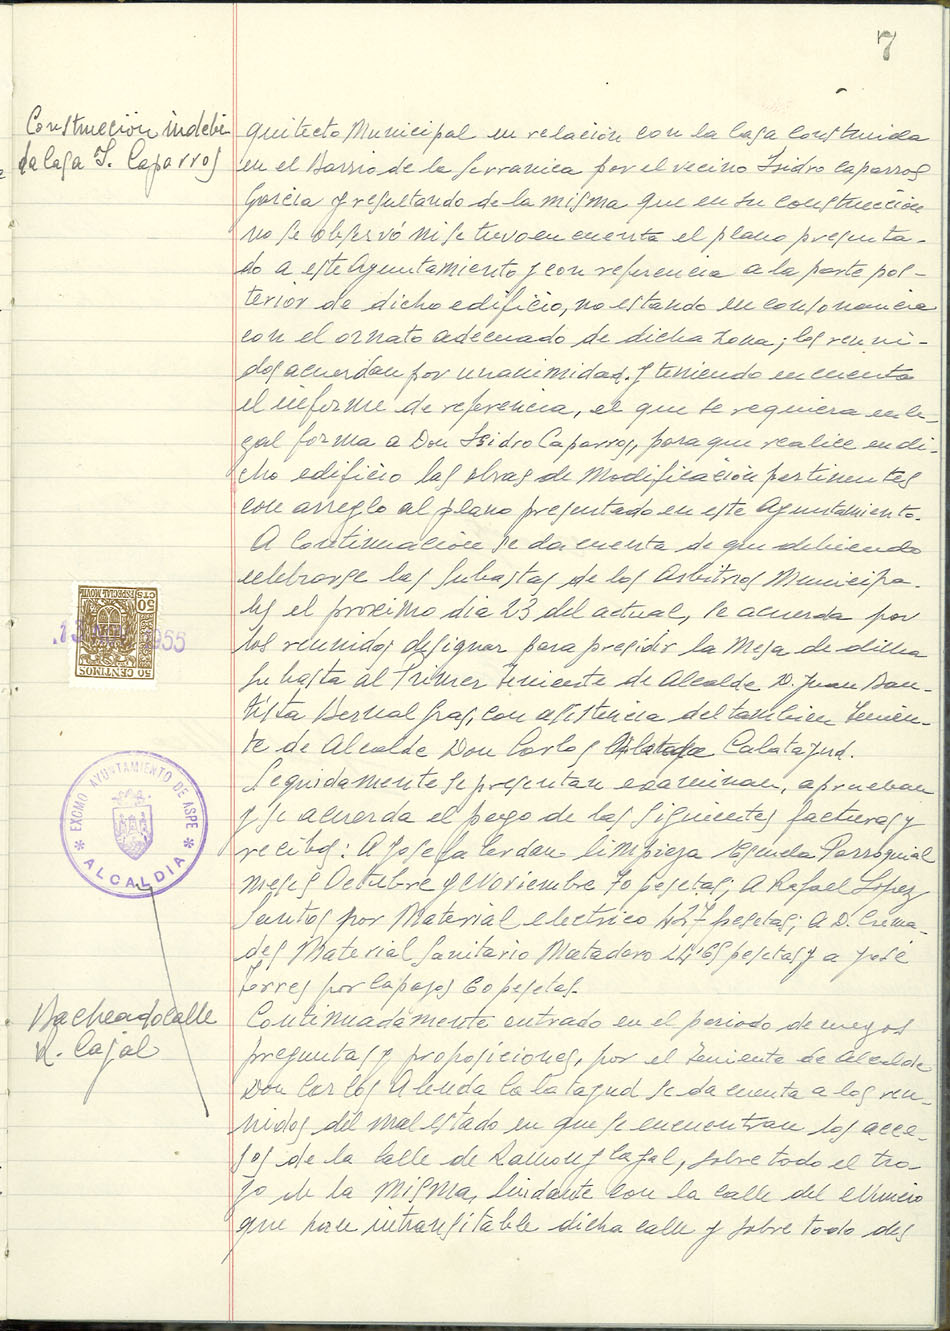 7
Construccion indebi-
da Casa I. Caparros
quitecto Municipal en relación con la casa construida
en el Barrio de la Serranica por el vecino Isidro Caparros
Garcia y resultando de la misma que en su construcción
no se observó ni se tuvo en cuenta el plano presenta-
do a este Ayuntamiento y con referencia a la parte pos-
terior de dicho edificio, no estando en consonancia
con el ornato adecuado de dicha zona; los reuni-
dos acuerdan por unanimidad. y teniendo en cuenta
el informe de referencia, el que se requiera en le-
gal forma a Don Isidro Caparros, para que realice en di-
cho edificio las obras de Modificación pertinentes
con arreglo al plano presentado en este Ayuntamiento.
A continuación se da cuenta de que debiendo
celebrarse las Subastas de los Arbitrios Municipa-
les el proximo dia 23 del actual, se acuerda por
los reunidos designar para presidir la Mesa de dicha
subasta al Primer Teniente de Alcalde D. Juan Bau-
tista Bernal Gras, con asistencia del tambien Tenien-
te de Alcalde Don Carlos Calatayud.
Seguidamente se presentan examinan, aprueban
y se acuerda el pago de las siguientes facturas y
recibos: A Josefa Cerdan limpieza Escuela Parroquial
meses Octubre y Noviembre 70 pesetas; A Rafael Lopez
Santos por Material electrico 427 pesetas; a D. Crema-
des Material Sanitario Matadero pesetas y a José
Torres por Capazos 60 pesetas.
Continuadamente entrado en el periodo de ruegos
preguntas y proposiciones, por el Teniente de Alcalde
Don Carlos Alenda Calatayud se da cuenta a los reu-
nidos del mal estado en que se encuentran los acce-
sos de la Calle de Ramon y Cajal, sobre todo el tro-
zo de la misma, lindante con la calle del
que hace intransitable dicha calle y sobre todo des
50 CTS
ESPECIAL MOVIL
50 CENTIMOS
13 1955
EXCMO AYUNTAMIENTO DE ASPE
* ALCALDIA *
Bacheado Calle
R. Cajal